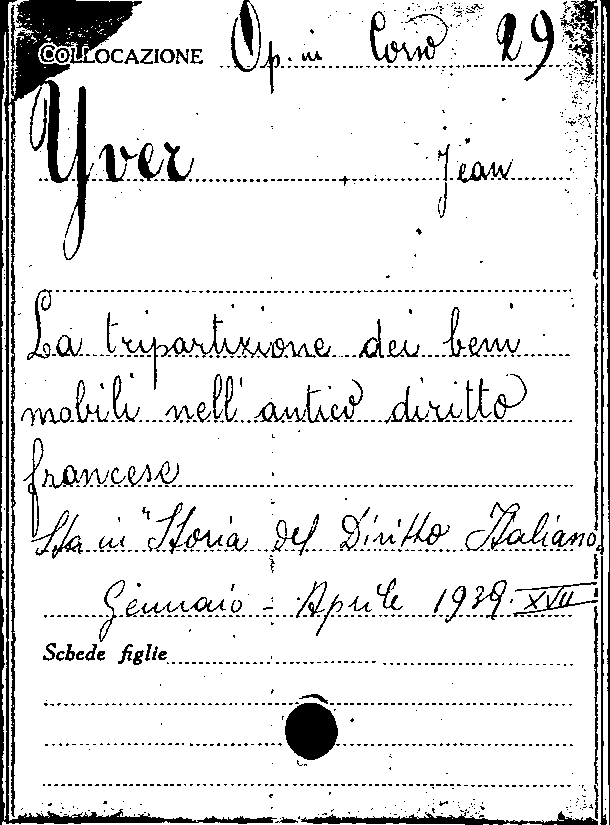 COLLOCAZIONE Op. in Corso 29
Yver Jean
La tripartizione dei beni
mobili nell' antico diritto
francese
Sta in "Storia del Diritto Italiano,
Gennaio - Aprile 1939. XVII
Schede figlie